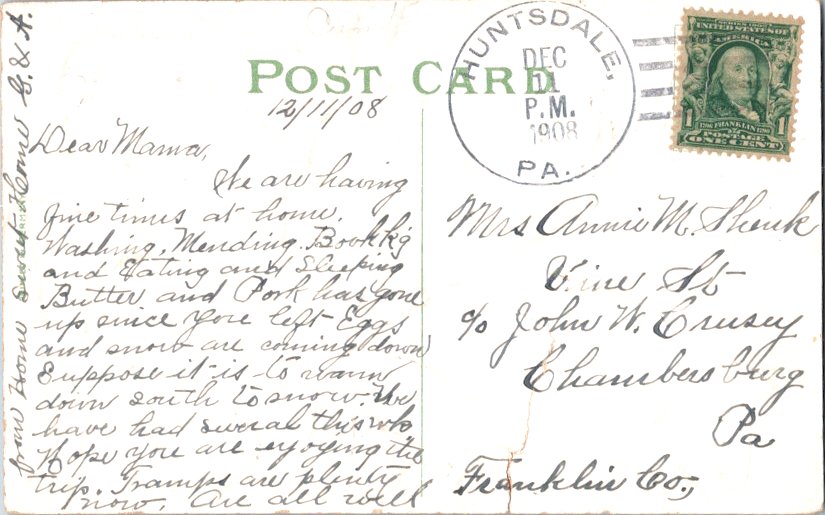 POST CARD
HUNTSDALE,
DEC
11
P.M.
1908
PA.
SERIES 1902
UNITED STATES OF
AMERICA
1706 FRANKLIN 1790
1 POSTAGE 1
ONE CENT
12/11/08
Dear Mama,
We are having
fine times at home.
Washing, Mending. Bookk'g
and Eating and Sleeping
Butter and Pork has gone
up since yore left Eggs
and snow are coming down
Suppose it is to warm
down south to snow. We
have had several this wk
Hope you are ejoying the
trip. Tramps are plenty
now. Are all well
from Home Sweet Home
Mrs Annie M. Shenk
Vine St
c/o John W. Crusey
Chambersburg
Pa
Franklin Co.,